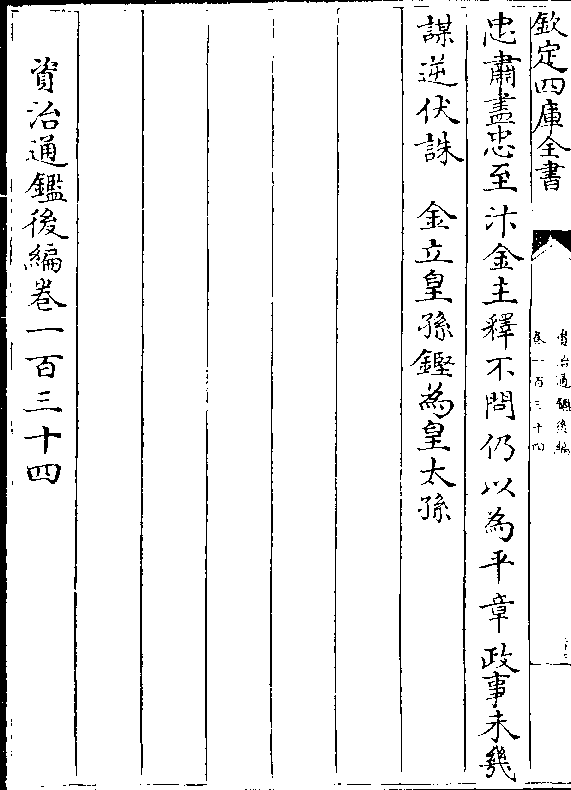 欽定四庫全書
資治通鑑後編
卷一百三十四
忠肅盡忠至汴金主釋不問仍以為平章政事未幾
謀逆伏誅　金立皇孫鏗為皇太孫
資治通鑑後編卷一百三十四